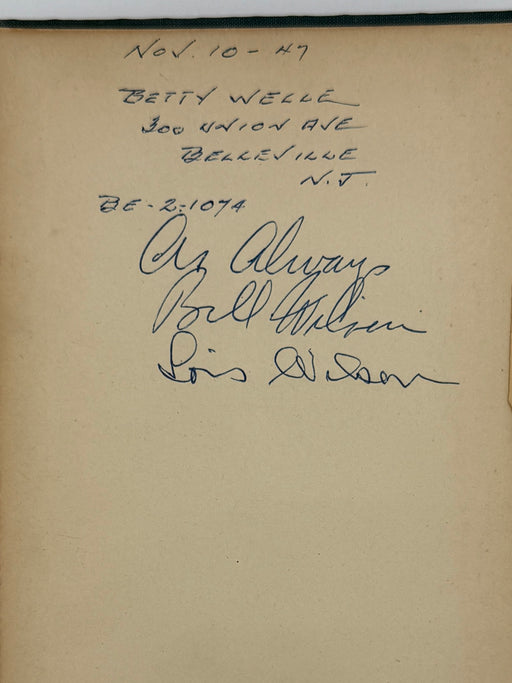 NOV. 10 - 47
BETTY WELLE
300 UNION AVE
BELLEVILLE
N.J.
BE-2-1074
As Always
Bill Wilson
Lois Wilson